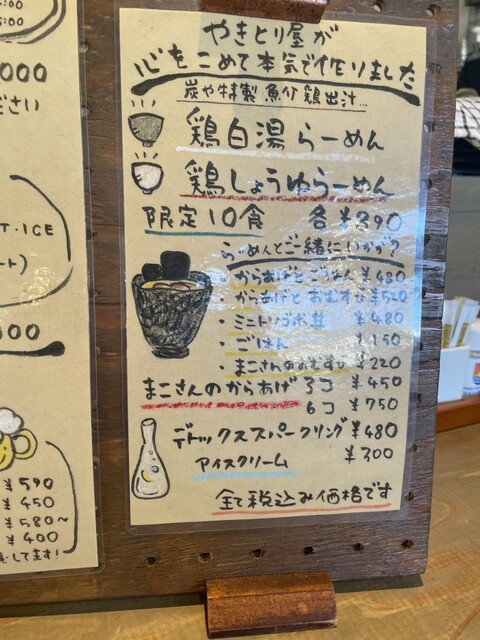 やきとり屋が
心をこめて本気で作りました
炭や特製 魚介鶏出汁…
鶏白湯らーめん
鶏しょうゆらーめん
限定10食 各¥890
らーめんとご一緒にいかが?
・からあげとごはん ¥480
・からあげとおむすび ¥520
・ミニトンヅポ丼 ¥480
・ごはん ¥150
・まこさんのおむすび ¥220
まこさんのからあげ 3コ ¥450
6コ ¥750
デトックススパークリング ¥480
アイスクリーム ¥300
全て税込み価格です
000
ださい
T・ICE
ート)
00
¥590
¥450
¥580~
¥400
してます!